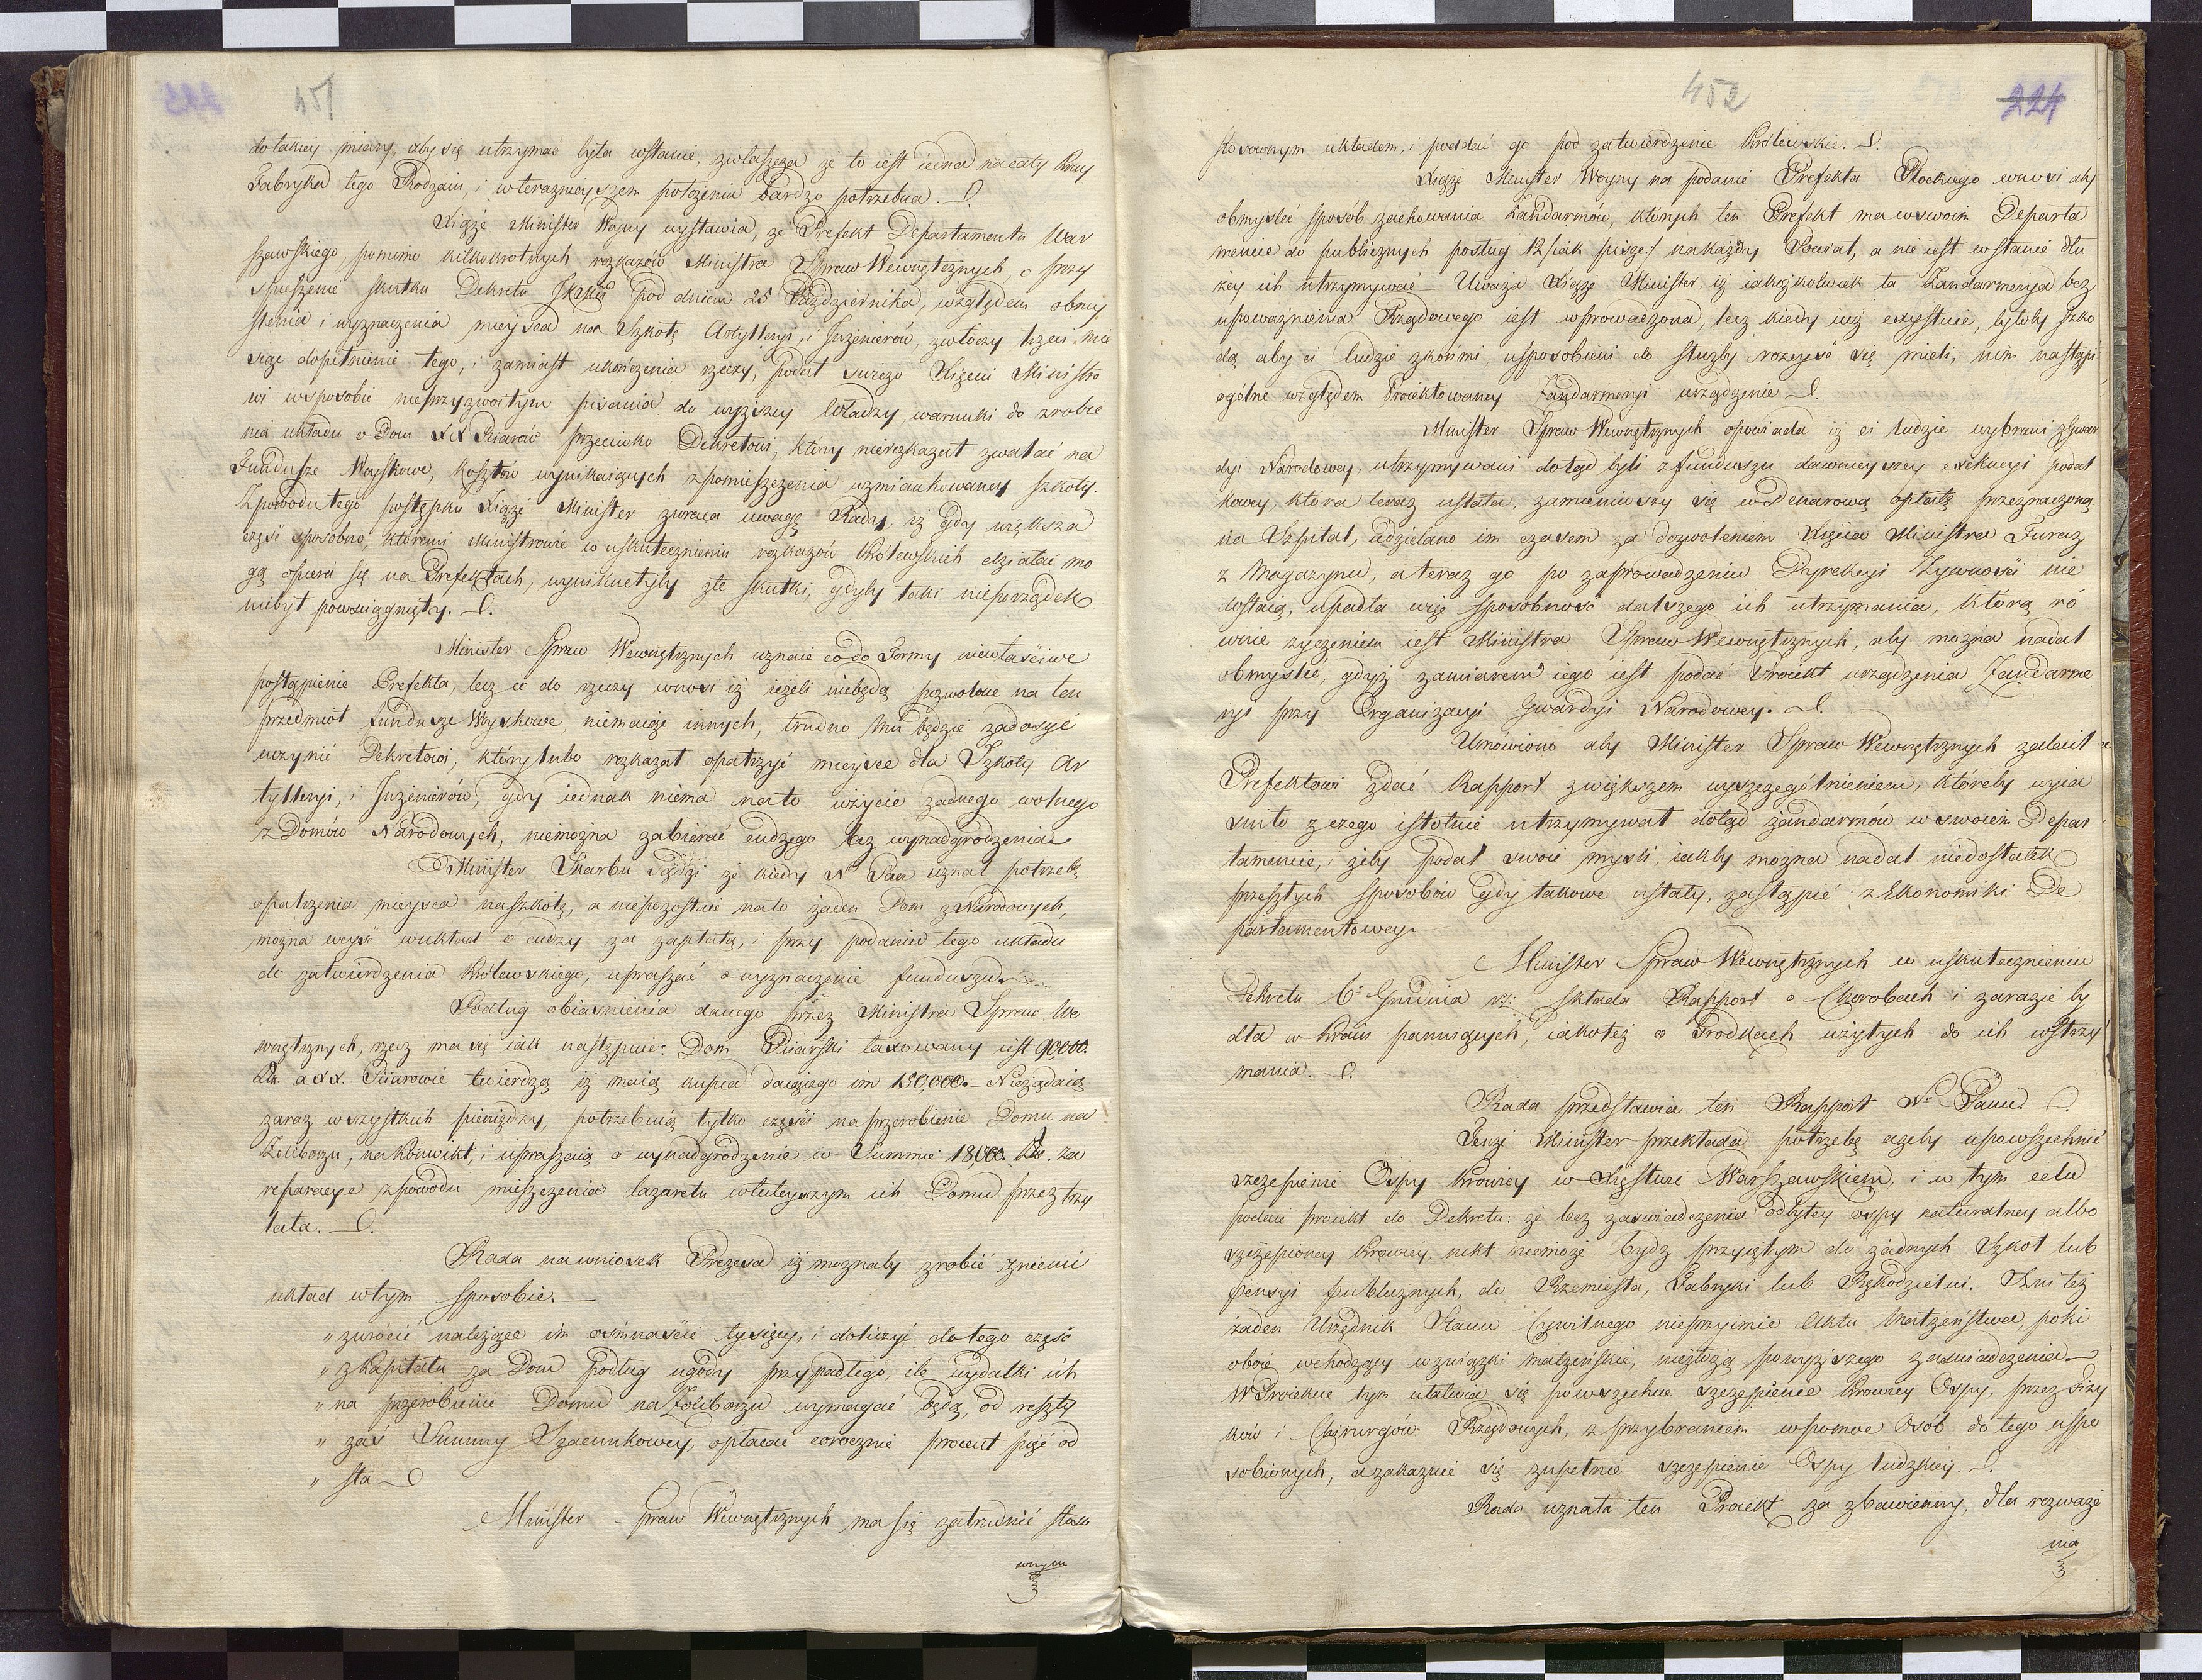 451
do takiey miary, aby się utrzymać była wstanie, zwłaszcza że to iest iedna na cały Kray
Fabryka tego Rodzaiu, i w teraznieyszem położeniu bardzo potrzebna.
Xiąże Minister Woyny wystawia, że Prefekt Departamentu War
szawskiego, pomimo kilkokrotnych rozkazów Ministra Spraw Wewnętrznych, o przy
spieszenie skutku Dekretu pod dniem 25 Października, względem obmy
ślenia i wyznaczenia mieysca na Szkołę Artylleryi, i Inżenierów, zwłóczy trzeci mie
siąc dopełnienie tego, i zamiast ukończenia rzeczy, podał swieżo Xięciu Ministro
wi w sposobie nieprzyzwoitym pisania do wyższey Władzy, warunki do zrobie
nia układu o Dom XX Piiarów przeciwko Dekretowi, który nierozkazał zwalać na
Fundusze Woyskowe, kosztów wynikaiących z pomieszczenia wzmiankowaney szkoły.
Z powodu tego postępku Xiąże Minister zwraca uwagę Rady, iż gdy większa
część sposobów, któremi Ministrowie w uskutecznieniu rozkazów Królewskich działać mo
gą opiera się na Prefektach, wyniknełyby złe skutki, gdyby taki nieporządek
niebył powsciągnięty.
Minister Spraw Wewnętrznych uznaie co do Formy niewłaściwe
postąpienie Prefekta, lecz co do rzeczy wnosi iż ieżeli niebędą pozwolone na ten
przedmiot Fundusze Woyskowe, niemaiąc innych, trudno Mu będzie zadosyć
uczynić Dekretowi, który lubo rozkazał opatrzyć mieysce dla Szkoły Ar
tylleryi, i Inżenierów, gdy iednak niema na to użycie żadnego wolnego
z Domów Narodowych, niemożna zabierać cudzego bez wynadgrodzenia.
Minister Skarbu sądzi że kiedy N. Pan uznał potrzebę
opatrzenia mieysca na szkołę, a niepozostaie na to żaden Dom z Narodowych,
można weyść w układ o cudzy za zapłatą, i przy podaniu tego układu
do zatwierdzenia Królewskiego, upraszać o wyznaczenie funduszu.
Podług obiasnienia danego przez Ministra Spraw We
wnętrznych, rzecz ma się iak następuie: Dom Piiarski taxowany iest 90,000.
a XX. Piiarowie twierdzą iż maią kupca daiącego im 150,000. Nieżądaią
zaraz wszystkich pieniędzy, potrzebuią tylko części na przerobienie Domu na
Żoliborzu, na Konwikt, i upraszaią o wynadgrodzenie w Summie 18,000. za
reparacye z powodu mieszczenia lazaretu w tuteyszym ich Domu przez trzy
lata.
Rada na wniosek Prezesa iż możnaby zrobić z niemi
układ w tym sposobie.
" zwrócić należące im ośmnaście tysięcy, i doliczyć do tego część
" z Kapitału za Dom podług ugody przypadłego, ile wydatki ich
" na przerobienie Domu na Żoliborzu wymagać będą, od reszty
" zaś Summy Szacunkowey, opłacać corocznie procent pięć od
" sta
Minister Spraw Wewnętrznych ma się zatrudnić stoso
wnym
452
224
stosownym układem, i poddać go pod zatwierdzenie Królewskie.
Xiąże Minister Woyny na podanie Prefekta Płockiego wnosi aby
obmyśleć sposób zachowania Żandarmów, których ten Prefekt ma w swoim Departa
mencie do publicznych posług 12 /iak pisze:/ na każdy Powiat, a nie iest w stanie dłu
żey ich utrzymywać — Uważa Xiąże Minister, iż iakożkolwiek ta Żandarmerya bez
upoważnienia Rządowego iest wprowadzona, lecz kiedy iuż exystuie, byłoby szko
dą aby ci ludzie z końmi, usposobieni do służby rozeyść się mieli, nim nastąpi
ogólne względem Proiektowaney Żandarmeryi urządzenie.
Minister Spraw Wewnętrznych opowiada iż ci ludzie wybrani z Gwar
dyi Narodowey, utrzymywani dotąd byli z funduszu dawnieyszey exekucyi podat
kowey, która teraz ustała, zamieniwszy się w Denarową opłatę przeznaczoną
na Szpital, udzielano im czasem za dozwoleniem Xięcia Ministra Furaż
z Magazynu, a teraz go po zaprowadzeniu Dyrekcyi Żywności nie
dostaią, upadła więc sposobność dalszego ich utrzymania, którą ró
wnie życzeniem iest Ministra Spraw Wewnętrznych, aby można nadal
obmyslić, gdyż zamiarem iego iest podać Proiekt urządzenia Żandarme
ryi przy Organizacyi Gwardyi Narodowey.
Umówiono aby Minister Spraw Wewnętrznych zalecił
Prefektowi zdać Rapport z większem wyszczegółnieniem, któreby wyia
sniło z czego istotnie utrzymywał dotąd żandarmów w swoiem Depar
tamencie, i żeby podał swoie mysli, iakby można nadal niedostatek
przeszłych sposobów gdy takowe ustały, zastąpić z Ekonomiki De
partamentowey.
Minister Spraw Wewnętrznych w uskutecznieniu
Dekretu 6. Grudnia składa Rapport o Chorobach i zarazie by
dła w Kraiu panuiących, iakoteż o Srodkach użytych do ich wstrzy
mania.
Rada przedstawia ten Rapport N. Panu.
Tenże Minister przekłada potrzebę ażeby upowszechnić
szczepienie Ospy Krowiey w Xięstwie Warszawskiem, i w tym celu
podaie proiekt do Dekretu: że bez zaswiadczenia odbytey ospy naturalney albo
szczepioney Krowiey, nikt niemoże bydź przyiętym do żadnych Szkół lub
Pensyi publicznych, do Rzemiosła, Fabryki lub Rękodzielni. Ani też
żaden Urzędnik Stanu Cywilnego nieprzyimie Aktu Małżeństwa, poki
oboie wchodzący w związki małżeńskie, niezłożą powyższego zaswiadczenia.
W Proiekcie tym ułatwia się powszechne szczepienie Krowiey Ospy, przez Fizy
ków i Chirurgów Rządowych, z przybraniem w pomoc Osób do tego uspo
sobionych, a zakazuie się zupełnie szczepienie Ospy ludzkiey.
Rada uznała ten Proiekt za zbawienny, dla rozważe
nia